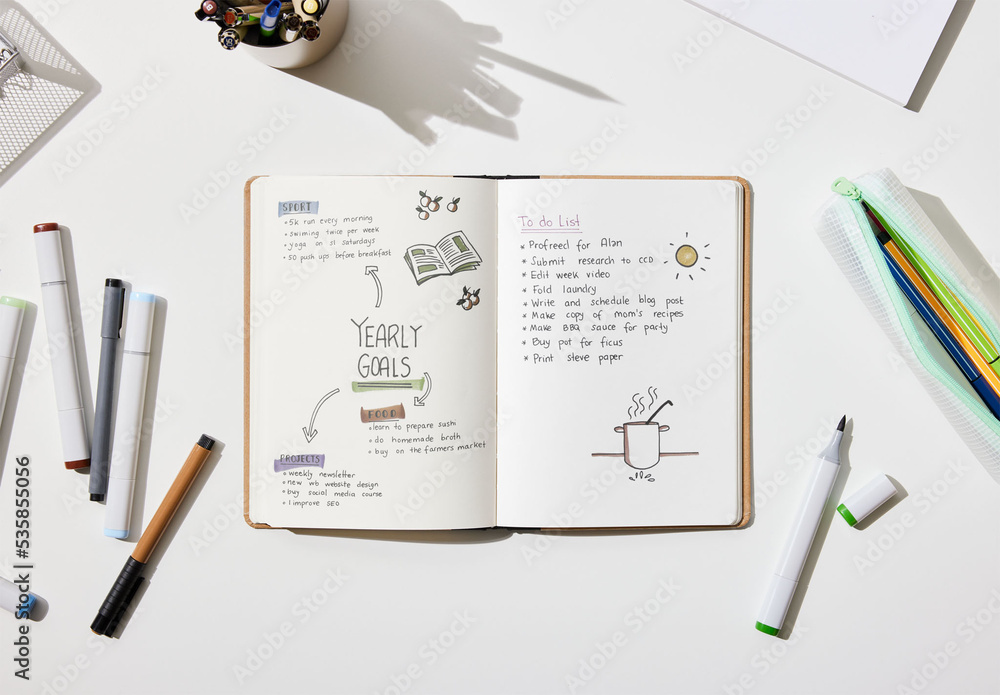 SPORT
• 5k run every morning
• swiming twice per week
• yoga on sl saturdays
• 50 push ups before breakfast
YEARLY
GOALS
FOOD
• learn to prepare sushi
• do homemade broth
• buy on the farmers market
PROJECTS
• weekly newsletter
• new wb website design
• buy social media course
• improve SEO
To do List
* Profreed for Alan
* Submit research to CCD
* Edit week video
* Fold laundry
* Write and schedule blog post
* Make copy of mom's recipes
* Make BBQ sauce for party
* Buy pot for ficus
* Print steve paper
Adobe Stock | #535855056
Adobe Stock